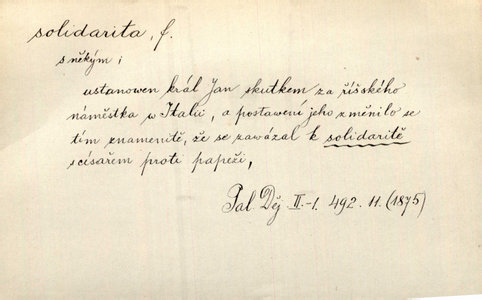 solidarita, f.
s někým;
ustanowen král Jan skutkem za říšského
náměstka w Italii, a postavení jeho změnilo se
tím znamenitě, že se zavázal k solidaritě
s císařem proti papeži,
Pal. Děj. II.-1. 492. 11. (1875)